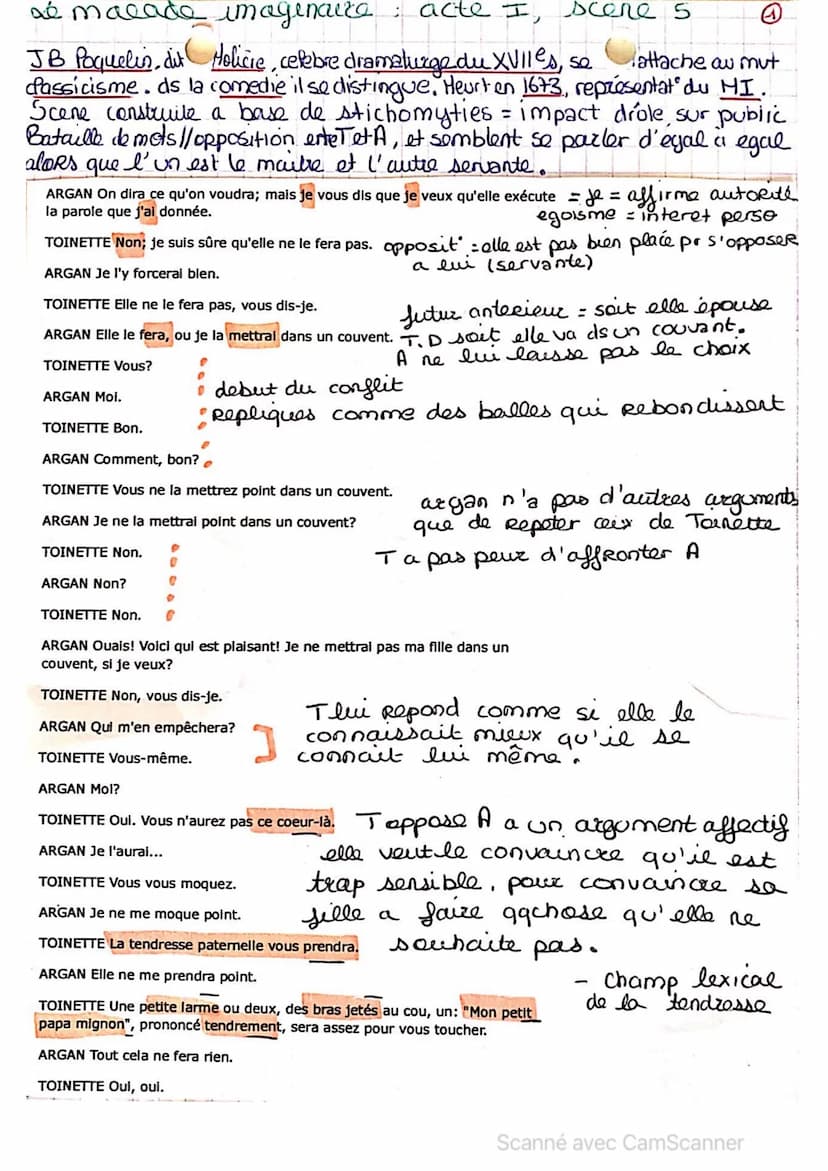 Le malade imaginaire : acte I, scene 5
1
JB Poquelin, dit Molière, celebre dramaturge du XVIIe s, se attache au mvt
classicisme. ds la comedie il se distingue. Meurt en 1673, représentat° du MI.
Scene construite a base de stichomyties = impact drôle sur public
Bataille de mots // opposition entre T et A, et semblent se parler d'égal à egal
alors que l'un est le maitre et l'autre servante.
ARGAN On dira ce qu'on voudra; mais je vous dis que je veux qu'elle exécute = je = affirme autorité
la parole que j'ai donnée. egoisme = interet perso
TOINETTE Non; je suis sûre qu'elle ne le fera pas. opposit° = elle est pas bien placé pr s'opposer
a lui (servante)
ARGAN Je l'y forcerai bien.
TOINETTE Elle ne le fera pas, vous dis-je.
futur anterieur = soit elle épouse
ARGAN Elle le fera, ou je la mettrai dans un couvent. T.D soit elle va ds un couvant.
A ne lui laisse pas le choix
TOINETTE Vous?
ARGAN Moi.
debut du conflit
TOINETTE Bon.
Repliques comme des balles qui rebondissent
ARGAN Comment, bon?
TOINETTE Vous ne la mettrez point dans un couvent.
argan n'a pas d'autres arguments
ARGAN Je ne la mettrai point dans un couvent? que de repeter ceix de Toinette
TOINETTE Non. T a pas peur d'affronter A
ARGAN Non?
TOINETTE Non.
ARGAN Ouais! Voici qui est plaisant! Je ne mettrai pas ma fille dans un
couvent, si je veux?
TOINETTE Non, vous dis-je.
T lui repond comme si elle le
ARGAN Qui m'en empêchera? connaissait mieux qu'il se
TOINETTE Vous-même. connait lui même.
ARGAN Moi?
TOINETTE Oui. Vous n'aurez pas ce coeur-là. T oppose A a un argument affectif
ARGAN Je l'aurai... elle veut le convaincre qu'il est
TOINETTE Vous vous moquez. trap sensible, pour convaincre sa
ARGAN Je ne me moque point. fille a faire qqchose qu'elle ne
TOINETTE La tendresse paternelle vous prendra. souhaite pas.
ARGAN Elle ne me prendra point. - champ lexical
de la tendresse
TOINETTE Une petite larme ou deux, des bras jetés au cou, un: "Mon petit
papa mignon", prononcé tendrement, sera assez pour vous toucher.
ARGAN Tout cela ne fera rien.
TOINETTE Oui, oui.
Scanné avec CamScanner